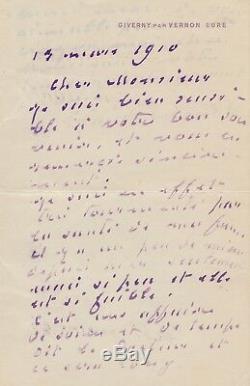 GIVERNY PAR VERNON EURE
13 mars 1910
Cher Monsieur
Je suis bien sensi
ble à votre bon sou
venir, et vous en
remercie sincère
ment.
Je suis en effet
très tourmenté par
la santé de ma femme
il y a un peu de mieux
depuis
aussi si peu et elle
est si faible!
c'est une affaire
de soins et de temps
dit le docteur et
ce sera long